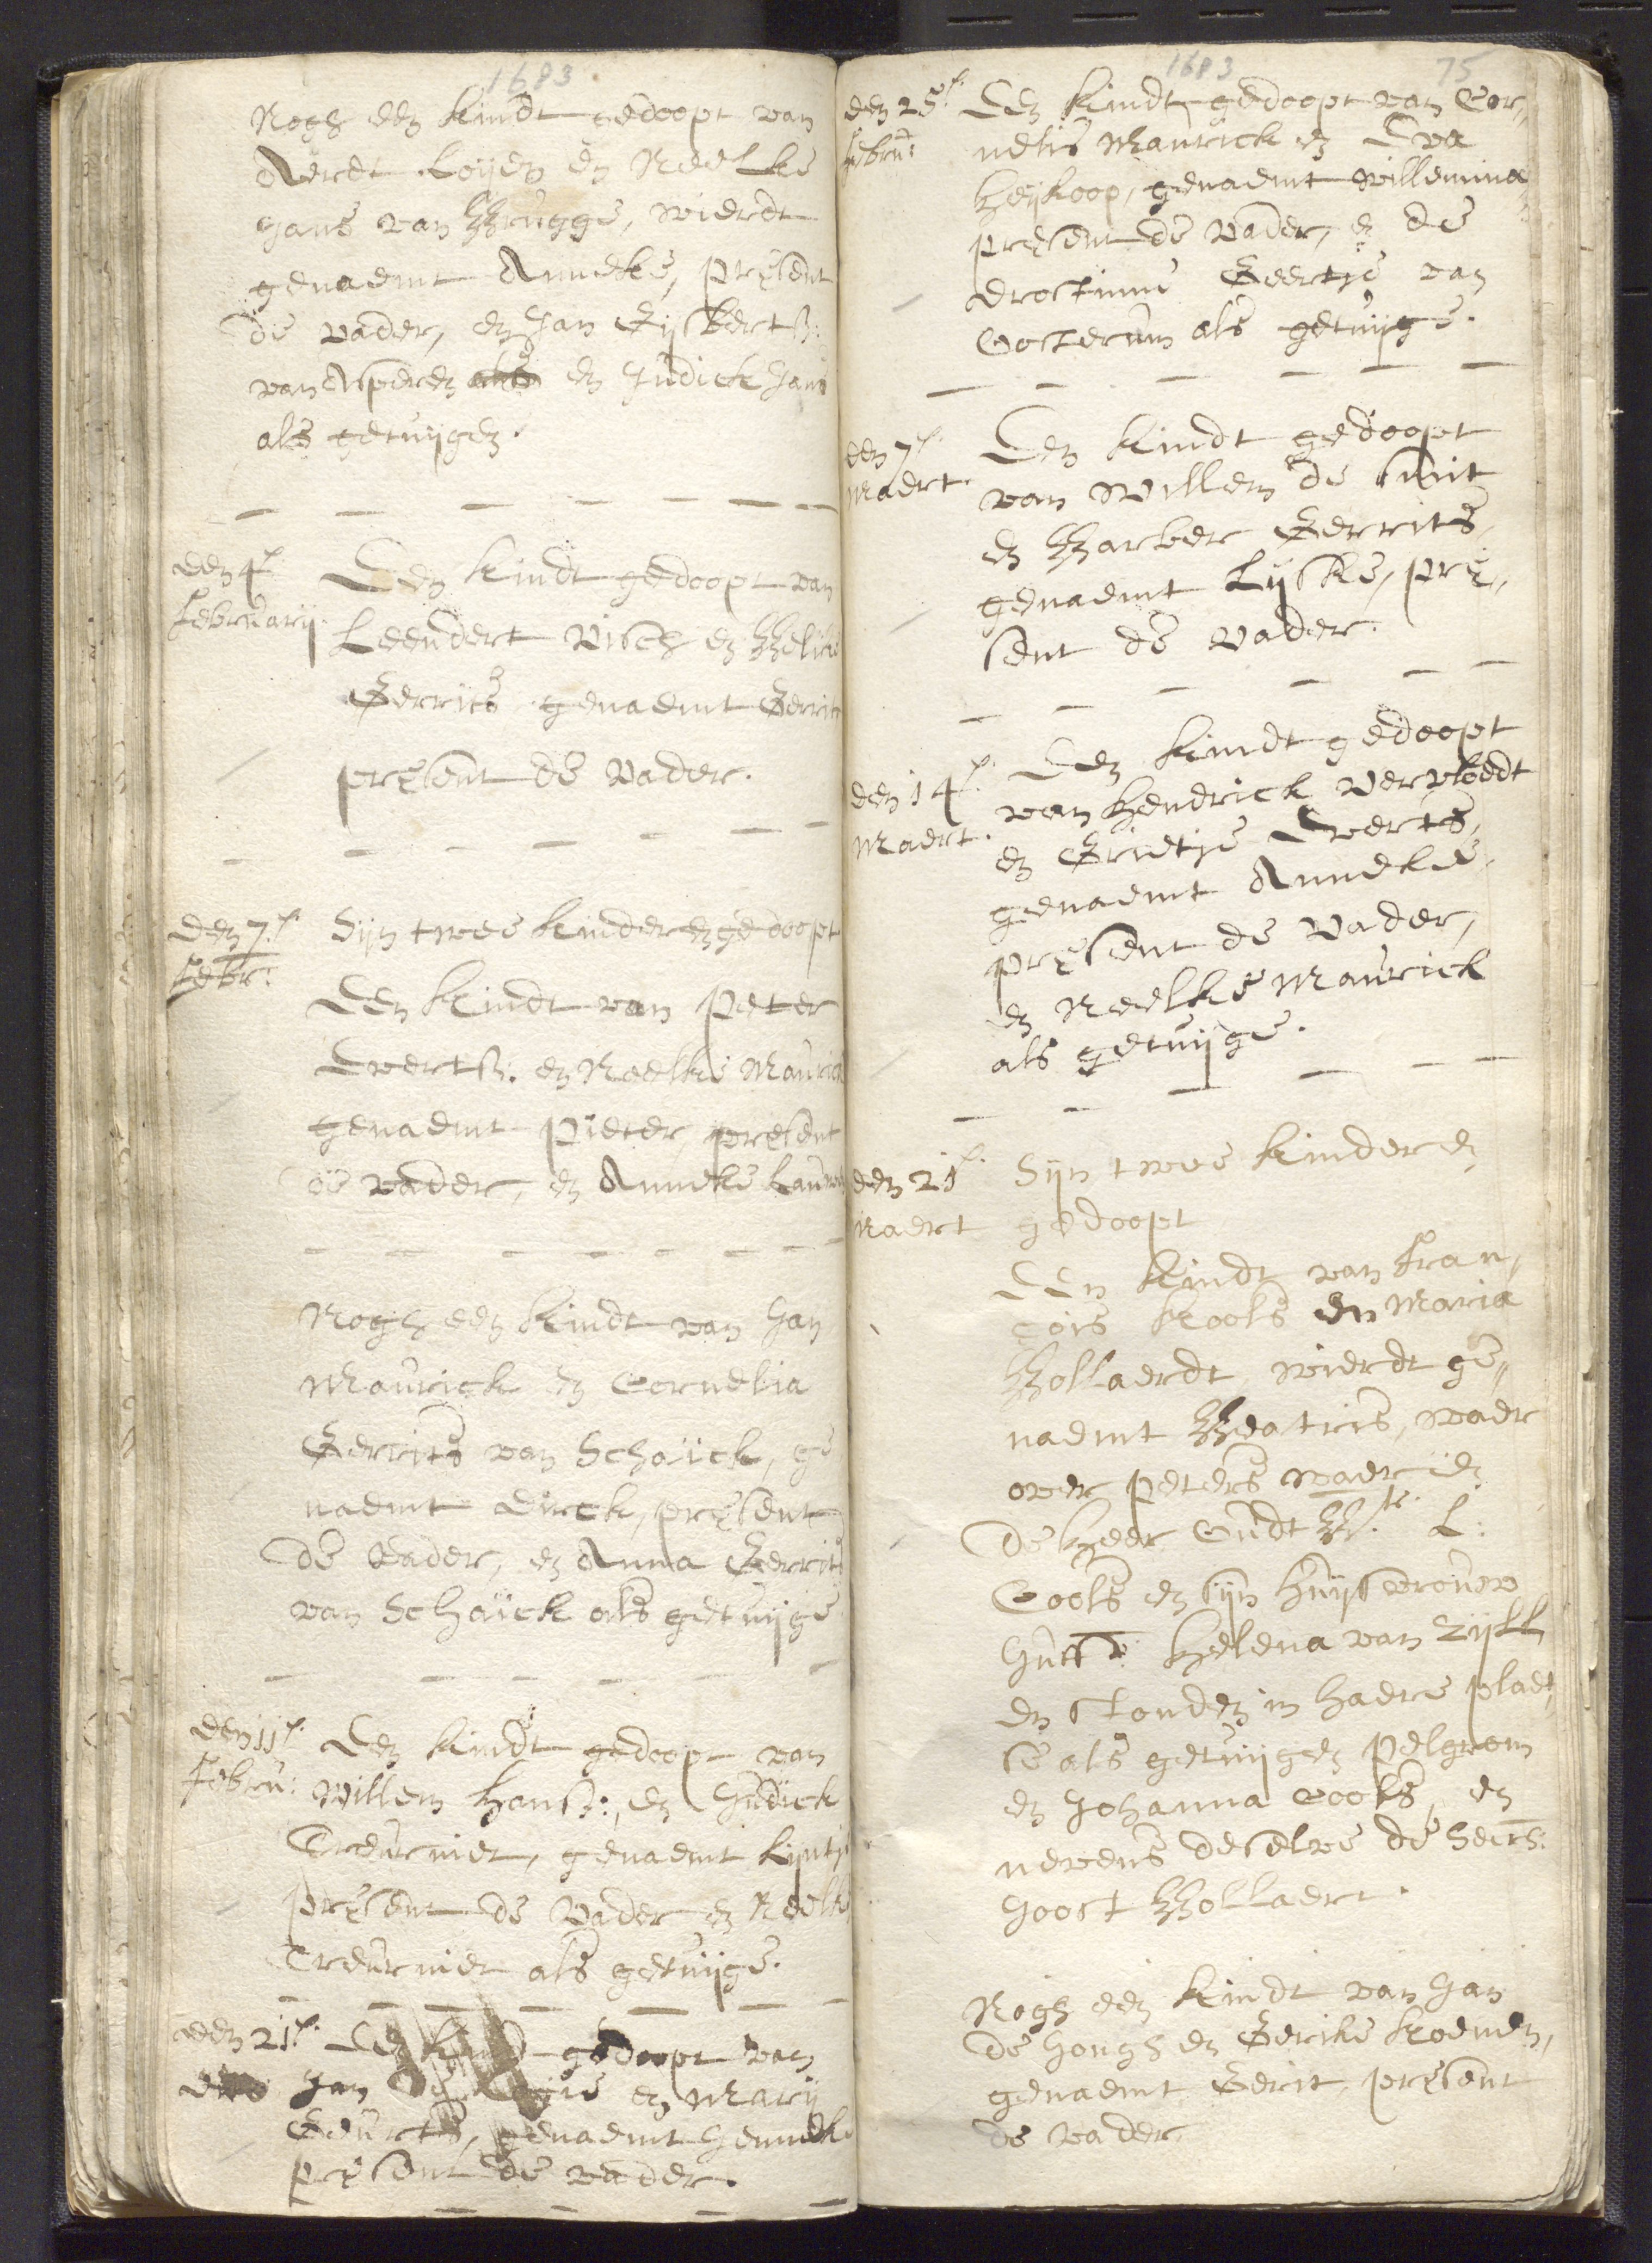 1683
Nogh een kindt gedoopt van
Aerdt Loijen en Neelke
Jans van Brugge, wierdt
genaemt Anneke, present
de vader, en Jan Gijsbertsz:
van Asperen en Judick Jans
als getuijgen.
den 4.
february.
Een kindt gedoopt van
Leendert Visch en
Gerrits genaemt Gerrit
present de vader.
den 7.
febr:
Sijn twee kinderen gedoopt
Een kindt van Peter
Evertsz. en Neelke Maurick
genaemt Pieter, present
de vader, en Anneke
Nogh een kindt van Jan
Maurick en Cornelia
Gerrits van Schaick, ge
naemt Dirck, present
de vader, en Anna Gerrits
van Schaick als getuijge
den 11.
febru:
Een kindt gedoopt van
Willem Hansz:, en Judick
Treurniet, genaemt Lijntje
present de vader en Neelke
Treurniet als getuijge.
den 21.
Een kindt gedoopt van
Jan en Marij
Geurts, genaemt Jenneke
present de vader.
1683
75
den 25.
febru:
Een kindt gedoopt van Cor„
nelis Maurick en Eva
Heijkoop, genaemt Willemina
present de vader, en de
Drostinne Geertje van
Oosterum als getuijge.
den 7.
Maert.
Een kindt gedoopt
van Willem de Smit
en Barber Gerrits,
genaemt Lijske, pre„
sent de vader.
den 14.
Maert.
Een kindt gedoopt
van Hendrick Vervloedt
en Grietje Everts,
genaemt Anneke,
present de vader,
en Neelke Maurick
als getuijge.
den 21.
Maert
Sijn twee kinderen
gedoopt
Een kindt van Fran„
çois Kools en Maria
Bollaerdt, wierdt ge„
naemt Beatris, waer
over peters waeren
de heer Oudt L:
Cools en sijn huijsvrouw
Juff: Helena van Zijll
en stonden in haere plaet„
se als getuijgen Pelgrom
en Johanna Cools, en
nevens deselve de
Joost Bollaert.
Nogh een kindt van Jan
de Jongh en Gerike Koemen,
genaemt Gerit, present
de vader.